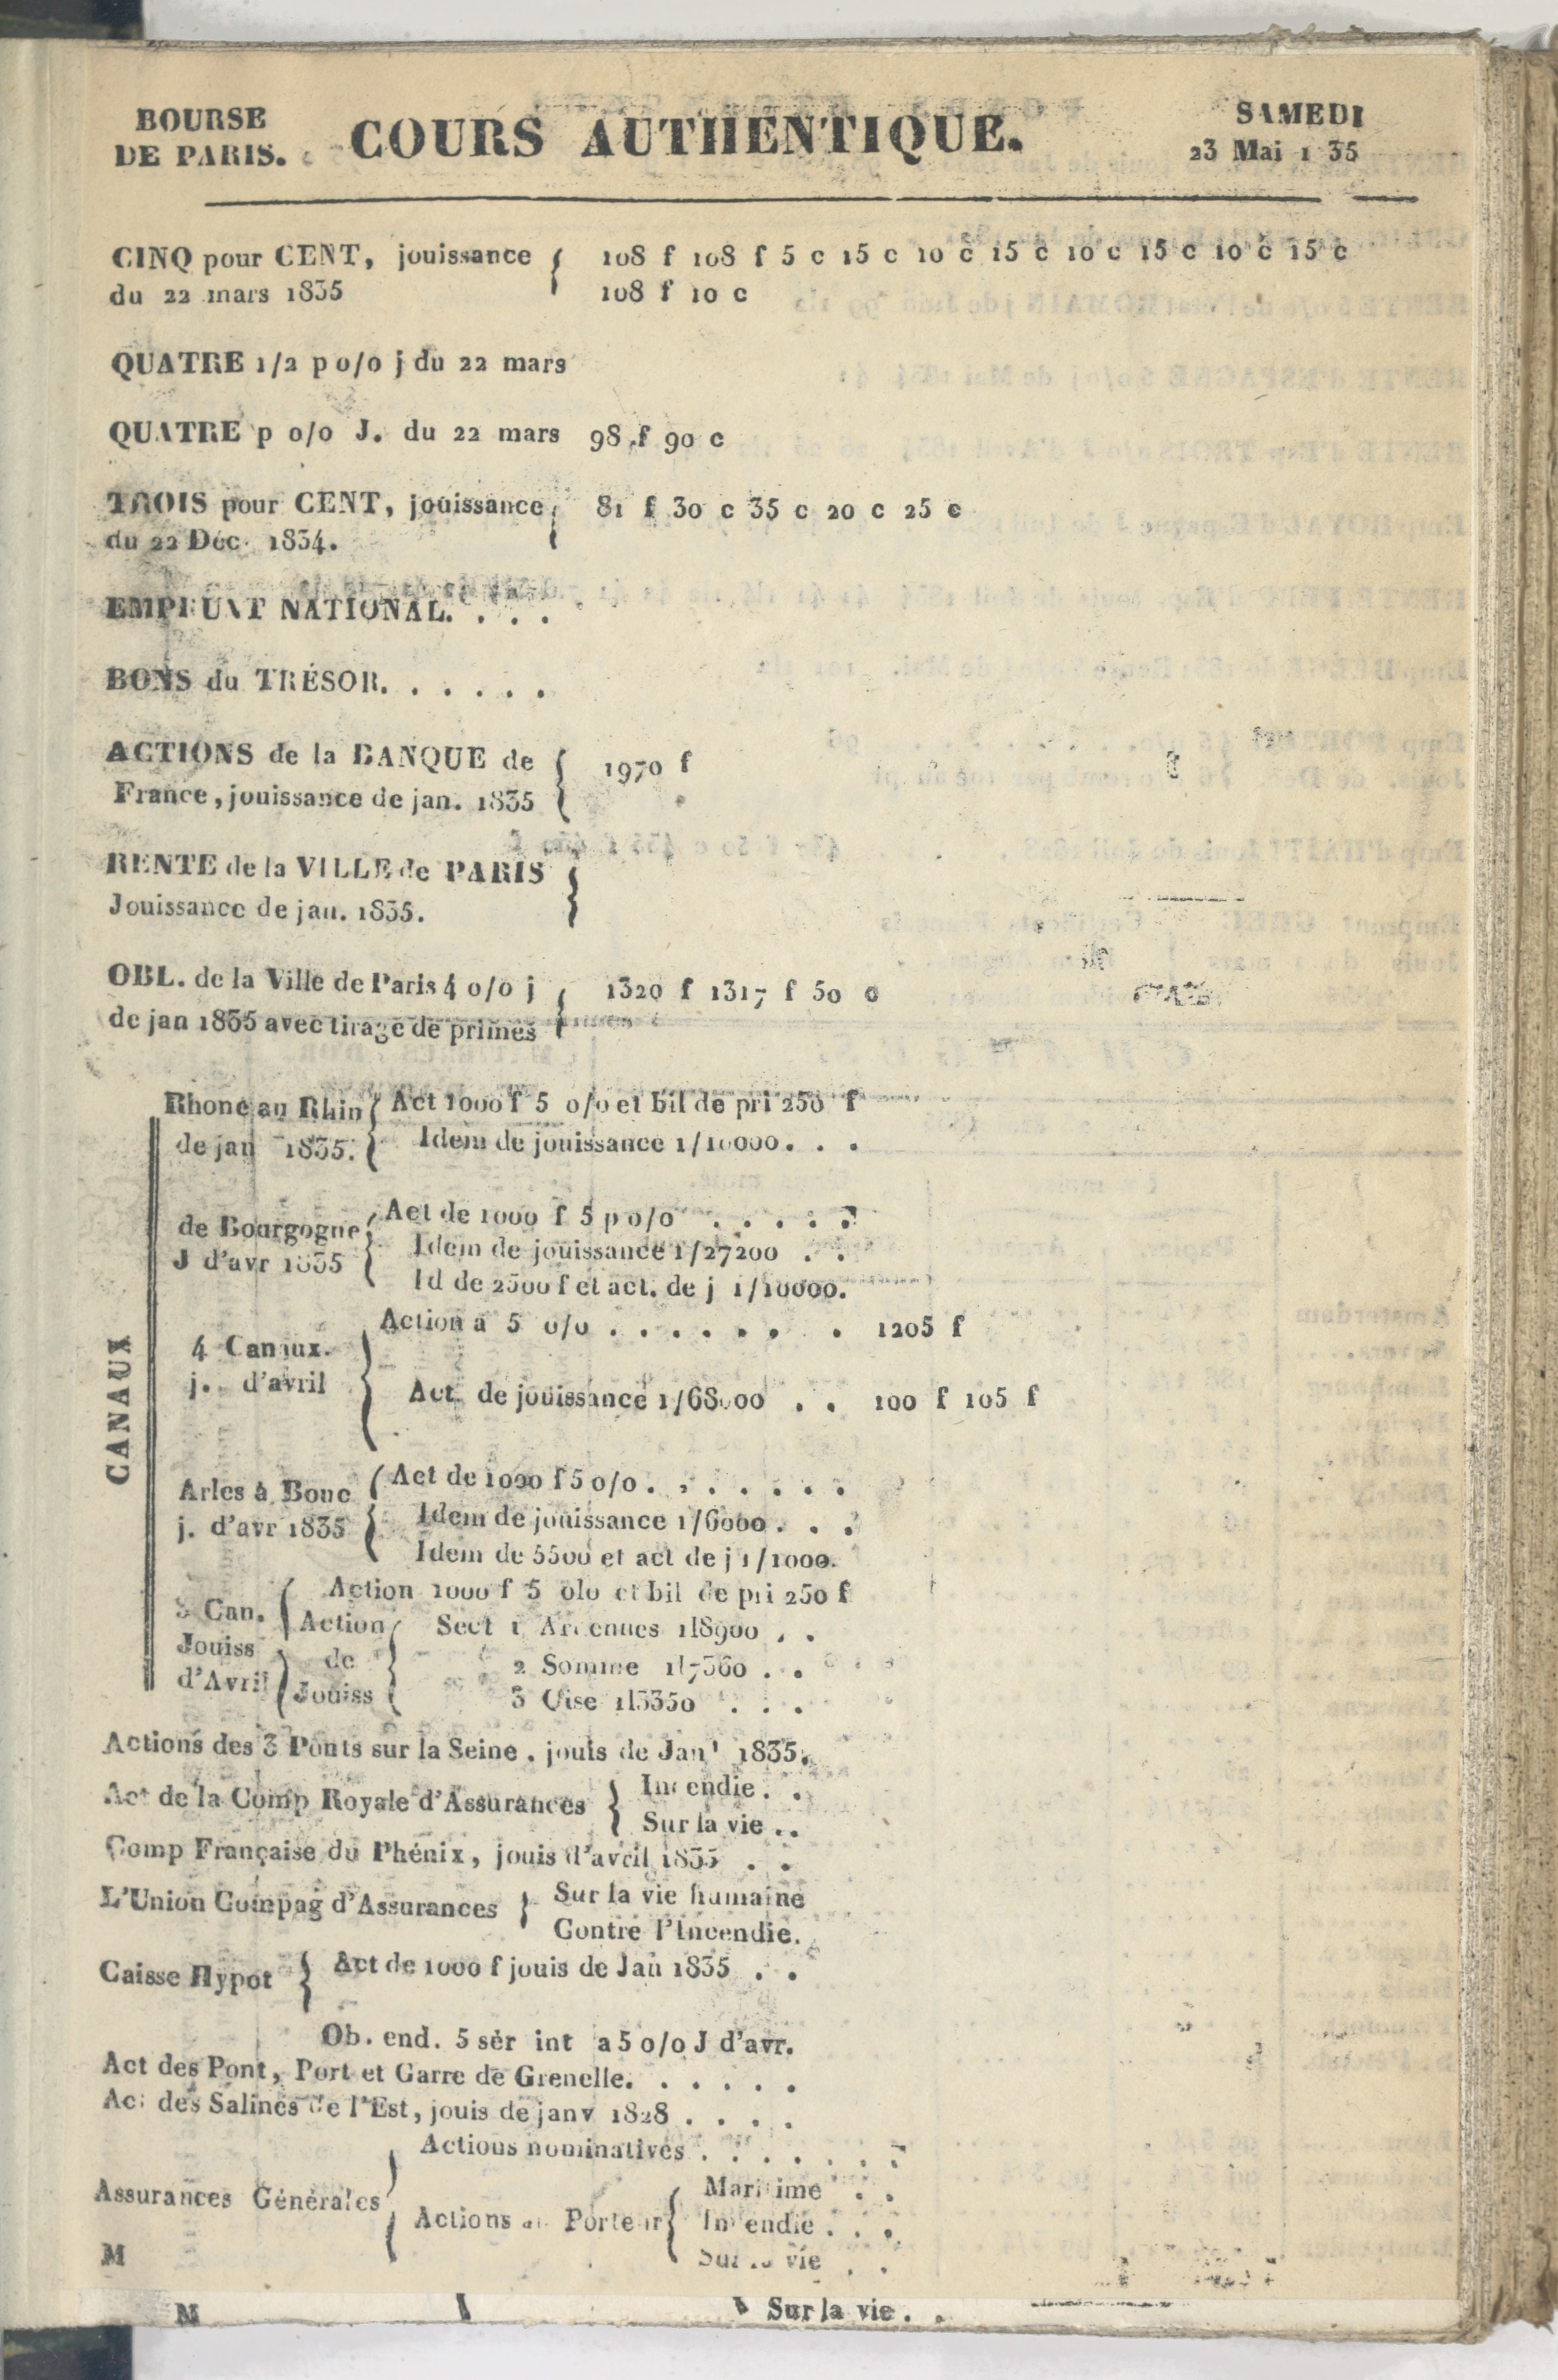 BOURSE
DE PARIS.
COURS AUTHENTIQUE.
SAMEDI
23 Mai 1 35
CINQ pour CENT, jouissance 108 f 108 f 5 c 15 c 10 c 15 c 10 c 15 c 10 c 15 c
du 22 mars 1835 108 f 10 c
QUATRE 1/2 p o/o j du 22 mars
QUATRE p o/o J. du 22 mars 98 f 90 c
TROIS pour CENT, jouissance 81 f 30 c 35 c 20 c 25 c
du 22 Déc. 1834.
EMPRUNT NATIONAL. . . .
BONS du TRÉSOR. . . . . .
ACTIONS de la BANQUE de 1970 f
France, jouissance de jan. 1835
RENTE de la VILLE de PARIS
Jouissance de jan. 1835.
OBL. de la Ville de Paris 4 o/o j 1320 f 1317 f 50 c
de jan 1835 avec tirage de primes
CANAUX
Rhone au Rhin Act 1000 f 5 o/o et bil de pri 250 f
de jan 1835. Idem de jouissance 1/10000. . .
de Bourgogne Act de 1000 f 5 p o/o . . . . .
J d'avr 1835 Idem de jouissance 1/27200 . .
Id de 2500 f et act. de j 1/10000.
Action a 5 o/o . . . . . . . 1205 f
4 Canaux.
j. d'avril Act. de jouissance 1/68000 . . 100 f 105 f
Arles à Bouc Act de 1000 f 5 o/o . . . . . . .
j. d'avr 1835 Idem de jouissance 1/6000. . .
Idem de 5500 et act de j 1/1000.
Action 1000 f 5 olo et bil de pri 250 f
3 Can. Action Sect 1 Ardennes 1l8900 . .
Jouiss de 2 Somme 1l7560 . .
d'Avril Jouiss 3 Oise 1l3350 . . .
Actions des 3 Ponts sur la Seine . jouis de Jan' 1835.
Act de la Comp Royale d'Assurances Incendie. .
Sur la vie . .
Comp Française du Phénix, jouis d'avril 1835 . .
L'Union Compag d'Assurances Sur la vie humaine
Contre l'Incendie.
Caisse Hypot Act de 1000 f jouis de Jan 1835 . .
Ob. end. 5 sér int a 5 o/o J d'avr.
Act des Pont, Port et Garre de Grenelle. . . . . .
Act des Salines de l'Est, jouis de janv 1828 . . . .
Actions nominatives . . . . . . .
Assurances Générales Maritime . .
Actions au Porteur Incendie . . .
Sur la vie . .
M
M Sur la vie . .